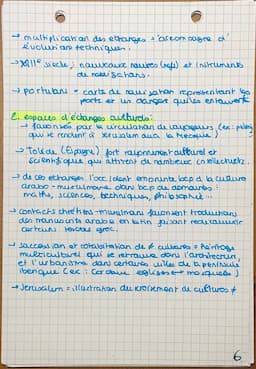 → multiplication des échanges s'accompagne d'
évolutions techniques.
→ XIIIe siècle ; nouveaux navires (nefs) et instruments
de navigations.
→ portulans = carte de navigation représentant les
ports et un danger qui les entourent
2. espaces d'échanges culturels :
→ favorisés par la circulation de voyageurs (ex : pèlerins
qui se rendent à Jérusalem ou à la Mecque)
→ Tolède (Espagne) fort rayonnement culturel et
scientifique qui attirent de nombreux intellectuels.
→ de ces échanges l'occident emprunte bcp à la culture
arabo-musulmane dans bcp de domaines :
maths, sciences, techniques, philosophie...
→ contacts chrétiens-musulmans favorisent traductions
des manuscrits arabe en latin faisant redécouvrir
certains textes grec.
→ succession et cohabitation de ≠ cultures = héritage
multiculturel qui se retrouve dans l'architecture,
et l'urbanisme dans certaines villes de la péninsule
ibérique (ex : Cordoue églises ↔ mosquées)
→ Jérusalem = illustration du croisement de cultures ≠
6